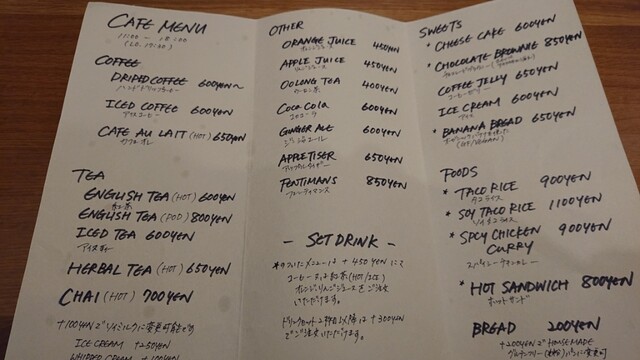 CAFE MENU
11:00 ~ 18:00
(L.O. 17:00)
COFFEE
DRIPED COFFEE 600YEN~
ハンドドリップコーヒー
ICED COFFEE 600YEN
アイスコーヒー
CAFE AU LAIT (HOT) 650YEN
カフェオレ
TEA
ENGLISH TEA (HOT) 600YEN
紅茶
ENGLISH TEA (POD) 800YEN
ICED TEA 600YEN
アイスティー
HERBAL TEA (HOT) 650YEN
CHAI (HOT) 700YEN
+100YENでソイミルクに変更可能です
ICE CREAM +250YEN
WHIPPED CREAM +100YEN
OTHER
ORANGE JUICE 450YEN
オレンジジュース
APPLE JUICE 450YEN
リンゴジュース
OOLONG TEA 400YEN
ウーロン茶
COCA COLA 600YEN
コカコーラ
GINGER ALE 600YEN
ジンジャエール
APPLETISER 650YEN
アップルタイザー
FENTIMANS 850YEN
フェンティマンス
- SET DRINK -
*のついたメニューは +450YEN にて
コーヒー又は紅茶(HOT/ICE)
オレンジ、リンゴジュースをご注文
いただけます。
ドリンクセット2杯目以降は +300YEN
でご注文いただけます。
SWEETS
* CHEESE CAKE 600YEN
* CHOCOLATE BROWNIE 850YEN
COFFEE JELLY 650YEN
コーヒーゼリー
ICE CREAM 600YEN
アイス
* BANANA BREAD 650YEN
(GF/VEGAN)
FOODS
* TACO RICE 900YEN
タコライス
* SOY TACO RICE 1100YEN
ソイタコライス
* SPCY CHICKEN CURRY 900YEN
スパイシーチキンカレー
* HOT SANDWICH 800YEN
ホットサンド
BREAD 200YEN
+200YENでHOMEMADE